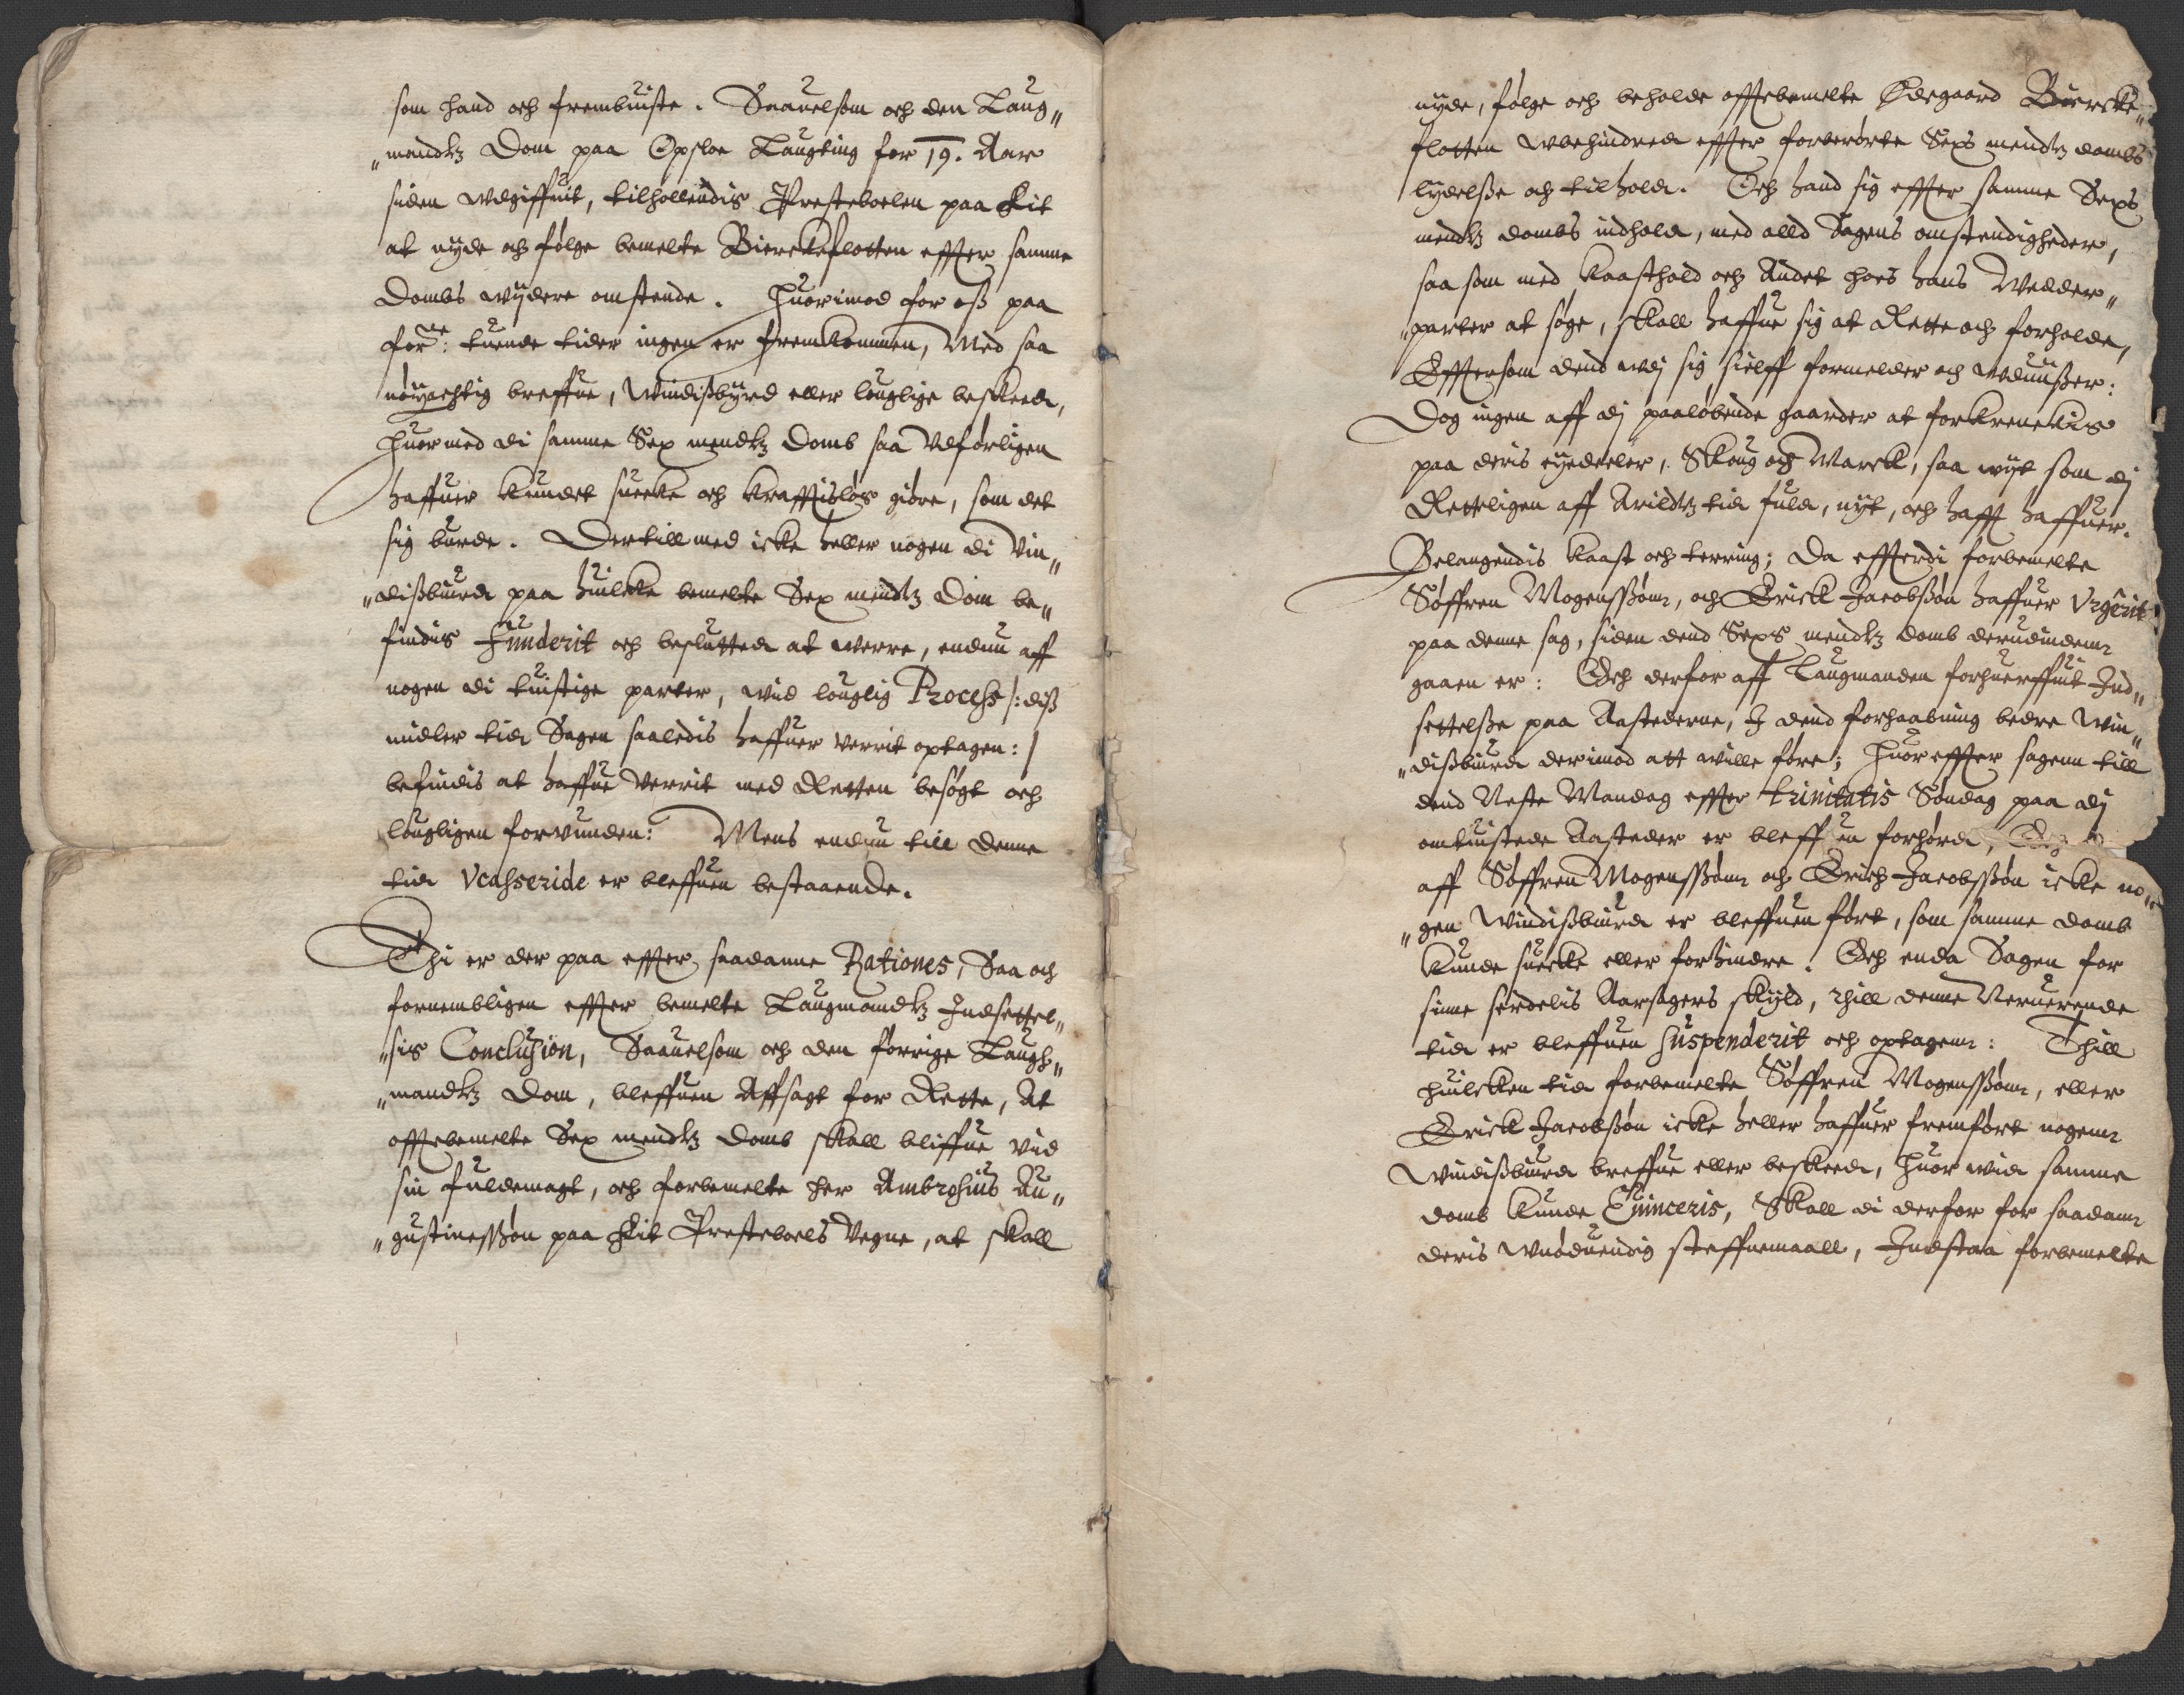 som hand och frembuiste. Saauelsom och den Laug„
„mandtz Dom paa Opsloe Laugting for 19. Aar
siden wdgiffuit, tilhollendis Presteboelen paa sit
at nyde och følge bemelte Bierckeflotten effter samme
Dombs wijdere omstende. Huorimod for oß paa
forne: tuende tider ingen er fremkommen, Med saa
nöyachtig breffue, Windißbyrd eller lauglige beskeed,
Huormed di samme Sex mendtz Domb saa Vdførligen
haffuer kundet suecke och krafftisløs giöre, som det
sig burde. Dertillmed icke heller nogen di Vin„
„dißbiurd paa huilcke bemelte Sex mendtz Dom be„
findis Funderit och beslutted at werre, endnu aff
nogen di tuistige parter, wid lauglig Process /: diß
midler tid Sagen saaledis haffuer Verrit optagen: /
befindis at haffue Verrit med Retten besøgt och
laugligen forvunden: Mens endnu till denne
tid Vcasseride er bleffuen bestaaende.
Thi er der paa effter saadanne Rationes, Saa och
fornembligen effter bemelte Laugmandtz Indsettel„
„sis Conclusion, Saauelsom och den forrige Laugh„
„mandtz Dom, bleffuen Affsagt for Rette, At
offtebemelte Sex mendtz Domb skall bliffue Vid
sin fuldemagt, och forbemelte Her Ambrosius Au„
„gustinessøn paa sit Presteboels Vegne, at skall
nyde, følge och beholde offtebemelte Ødegaard Biercke„
flotten wbehindred effter forberørte Sexs mendtz dombs
lydelsse och tilhold. Och hand sig effter samme Sexs
mendtz dombs indhold, med alld Sagens omstendigheder,
saa som med Kaasthold och Andet hoes hans Wedder„
„parter at søge, skall haffue sig at Rette och forholde,
Efftersom dend wdj sig sielff formelder och wduiißer:
Dog ingen aff dj paaløbende gaarder at forkrenckis
paa deris eyedeeler, Skoug och Marck, saa wijt som dj
Retteligen aff Arildtz tid fuld, nyt, och hafft haffuer.
Belangendis Kaast och terring; Da effterdi forbemelte
Søffren Mogenssøn, och Erick Jacobssøn haffuer Vrgerit
paa denne sag, siden dend Sexs mendtz domb derudinden
gaaen er: Och derfor aff Laugmanden forhuerffuit Ind„
settelsse paa Aastederne, J dend forhaabning bedre Win„
„dißbiurd derimod att wille føre; Huoreffter sagenn till
dend Neste Mandag effter trinitatis Søndag paa dj
omtuistede Aasteder er bleffuen forhørd,
aff Søffren Mogenssøn och Erich Jacobssøn icke no„
„gen Windißbiurd er bleffuen ført, som samme domb
kunde suecke eller forhindre. Och enda Sagen for
sinne serdelis Aarsagers skyld, Thill denne Neruerende
tid er bleffuen suspenderit och optagenn: Thill
huilcken tid forbemelte Søffren Mogenssøn, eller
Erick Jacobssøn icke heller haffuer fremført nogenn
Windißbiurd breffue eller beskeed, Huor wid samme
domb kunde Euinceris, Skall di derfor for saadann
deris wnøduendig steffnemaall, Indstaa forbemelte